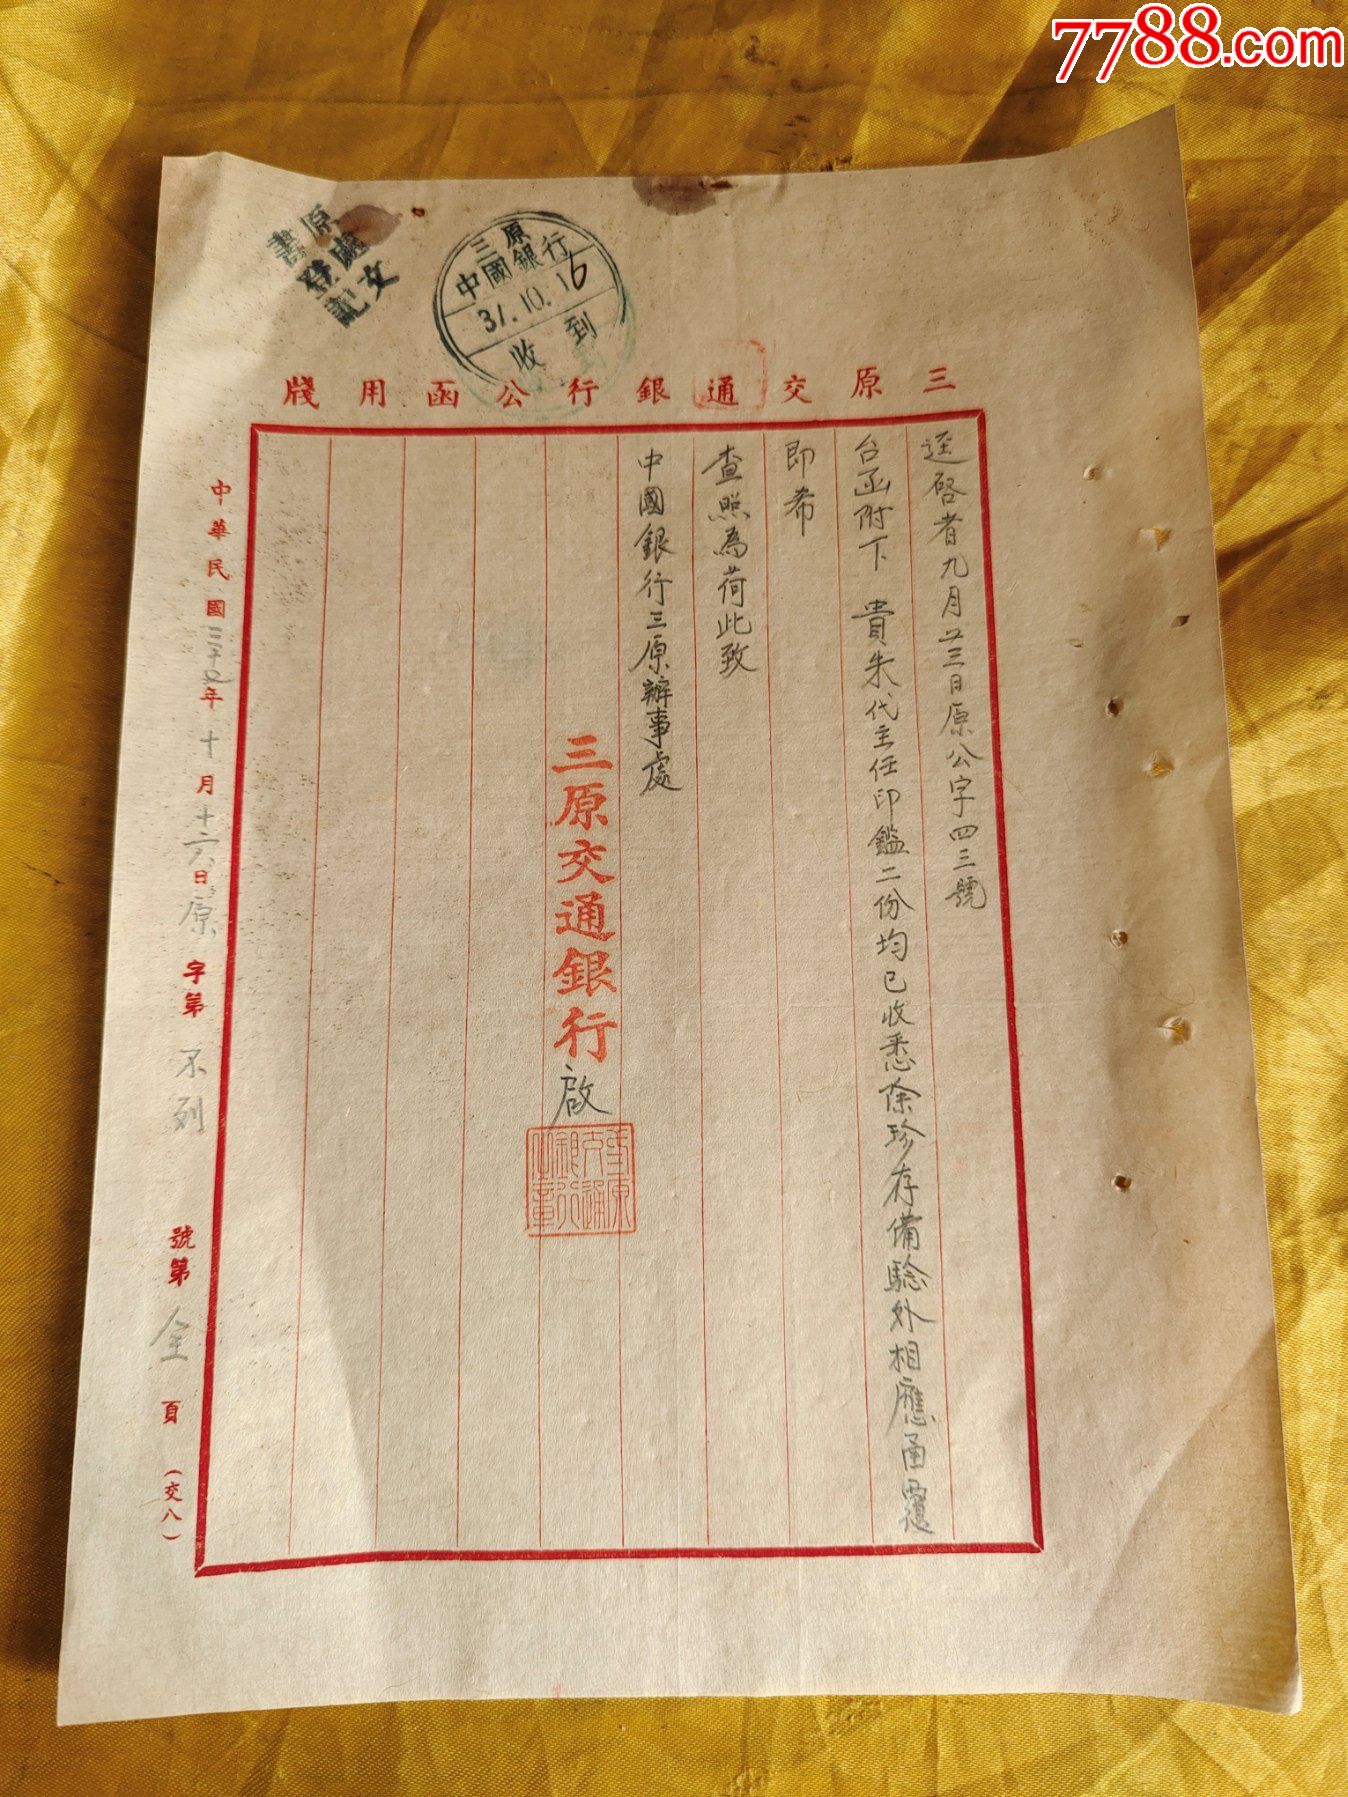 7788.com
三原
中國銀行
31.10.16
收到
三原交通銀行公函用牋
逕啓者九月廿三日原公字四三號
台函附下 貴朱代主任印鑑二份均已收悉除珍存備驗外相應函覆
即希
查照為荷此致
中國銀行三原辦事處
三原交通銀行啟
中華民國三十 年十月十六日原字第不列號第全頁(交八)